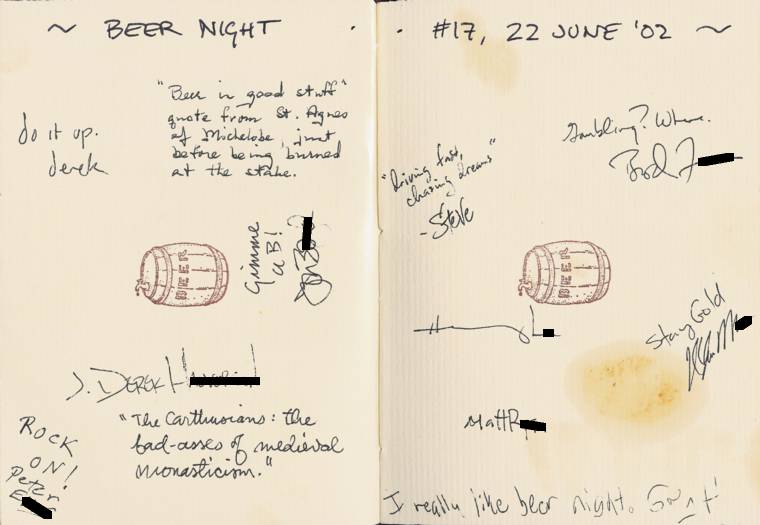 ~ BEER NIGHT
"Beer is good stuff"
quote from St. Agnes
of Michelobe, just
before being burned
at the stake.
do it up.
derek
Gimme
a B!
BEER
J. DEREK
"The Carthusians: the
bad-asses of medieval
monasticism."
ROCK
ON!
Peter
#17, 22 JUNE '02 ~
Gambling? Where.
"Driving fast,
chasing dreams"
-Steve
BEER
Stay Gold
Matt
I really like beer night.